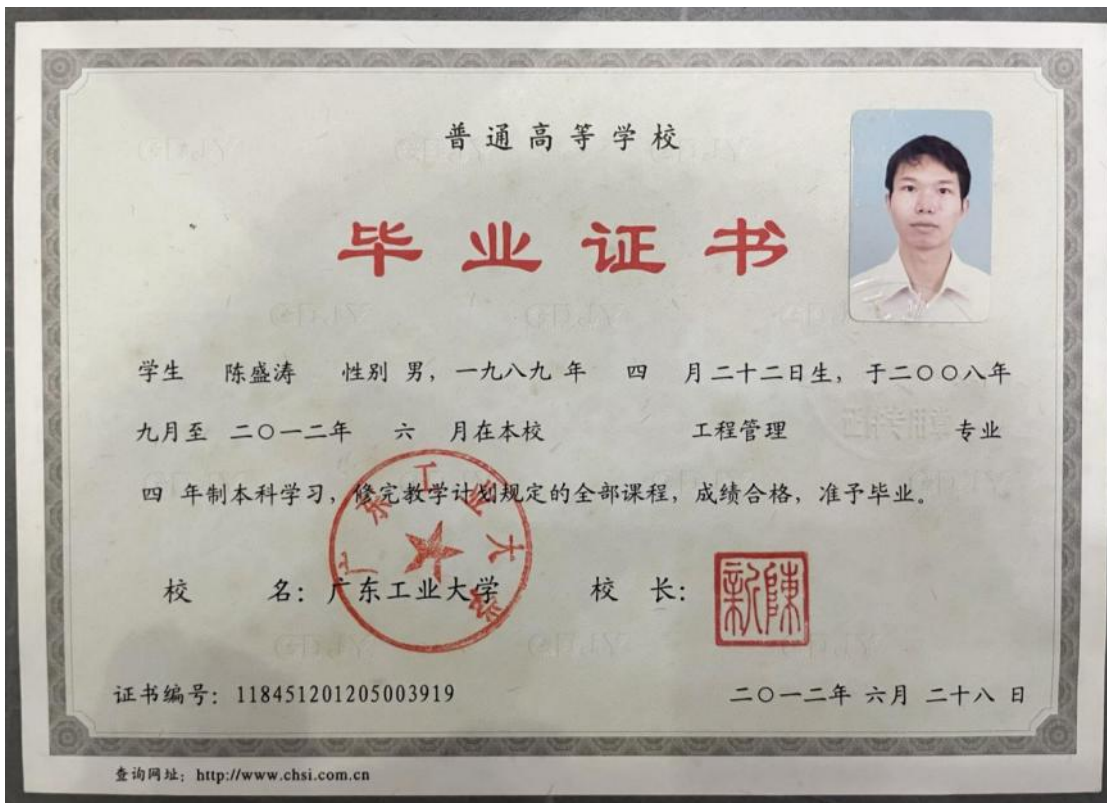 普通高等学校
毕业证书
学生 陈盛涛 性别 男，一九八九 年 四 月二十二日生，于二〇〇八年
九月至 二〇一二年 六 月在本校 工程管理 专业
四 年制本科学习，修完教学计划规定的全部课程，成绩合格，准予毕业。
广东工业大学
校 名：广东工业大学 校 长：
陳新
证书编号：118451201205003919 二〇一二年 六月 二十八 日
查询网址：http://www.chsi.com.cn